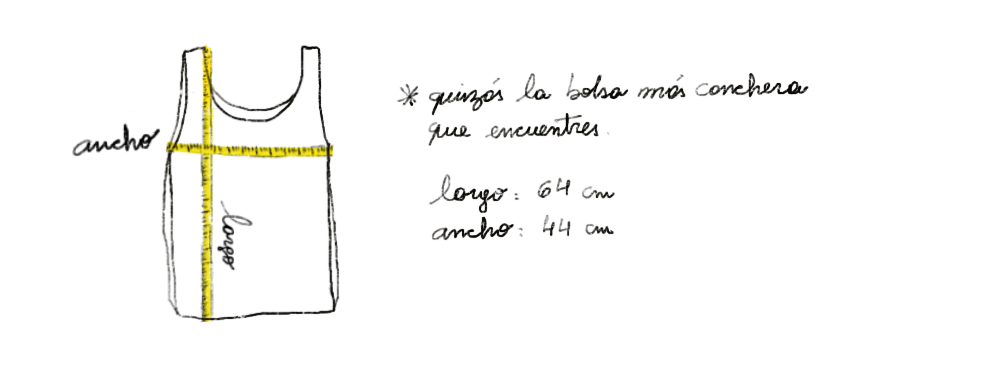 ancho
largo
* quizás la bolsa más conchera
que encuentres.
largo: 64 cm
ancho: 44 cm